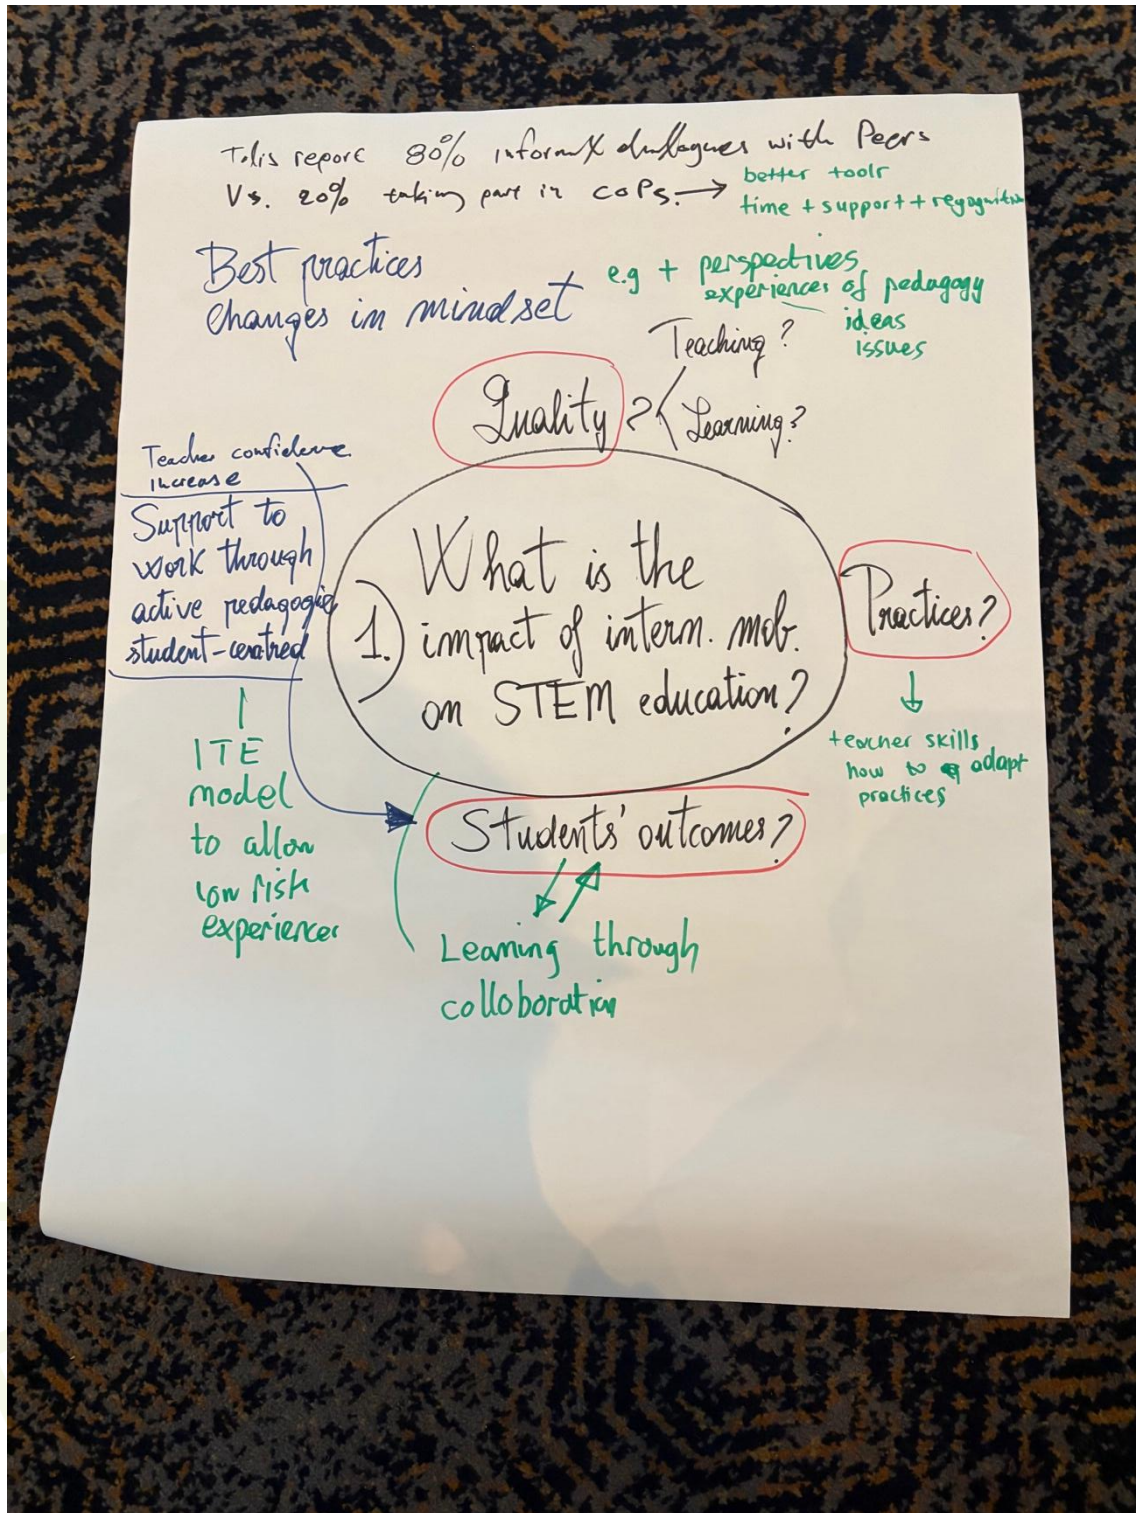 Talis report 80% informal dialogues with Peers
Vs. 20% taking part in CoPs. →
better tools
time + support + regognition
Best practices
changes in mindset
e.g + perspectives
experiences of pedagogy
ideas
issues
Teaching?
Quality?
Learning?
Teacher confidence
increase
Support to
work through
active pedagogie
student-centred
1.
What is the
impact of intern. mob.
on STEM education?
Practices?
teacher skills
how to adapt
practices
ITE
model
to allow
low risk
experiences
Students' outcomes?
Learning through
colloboration